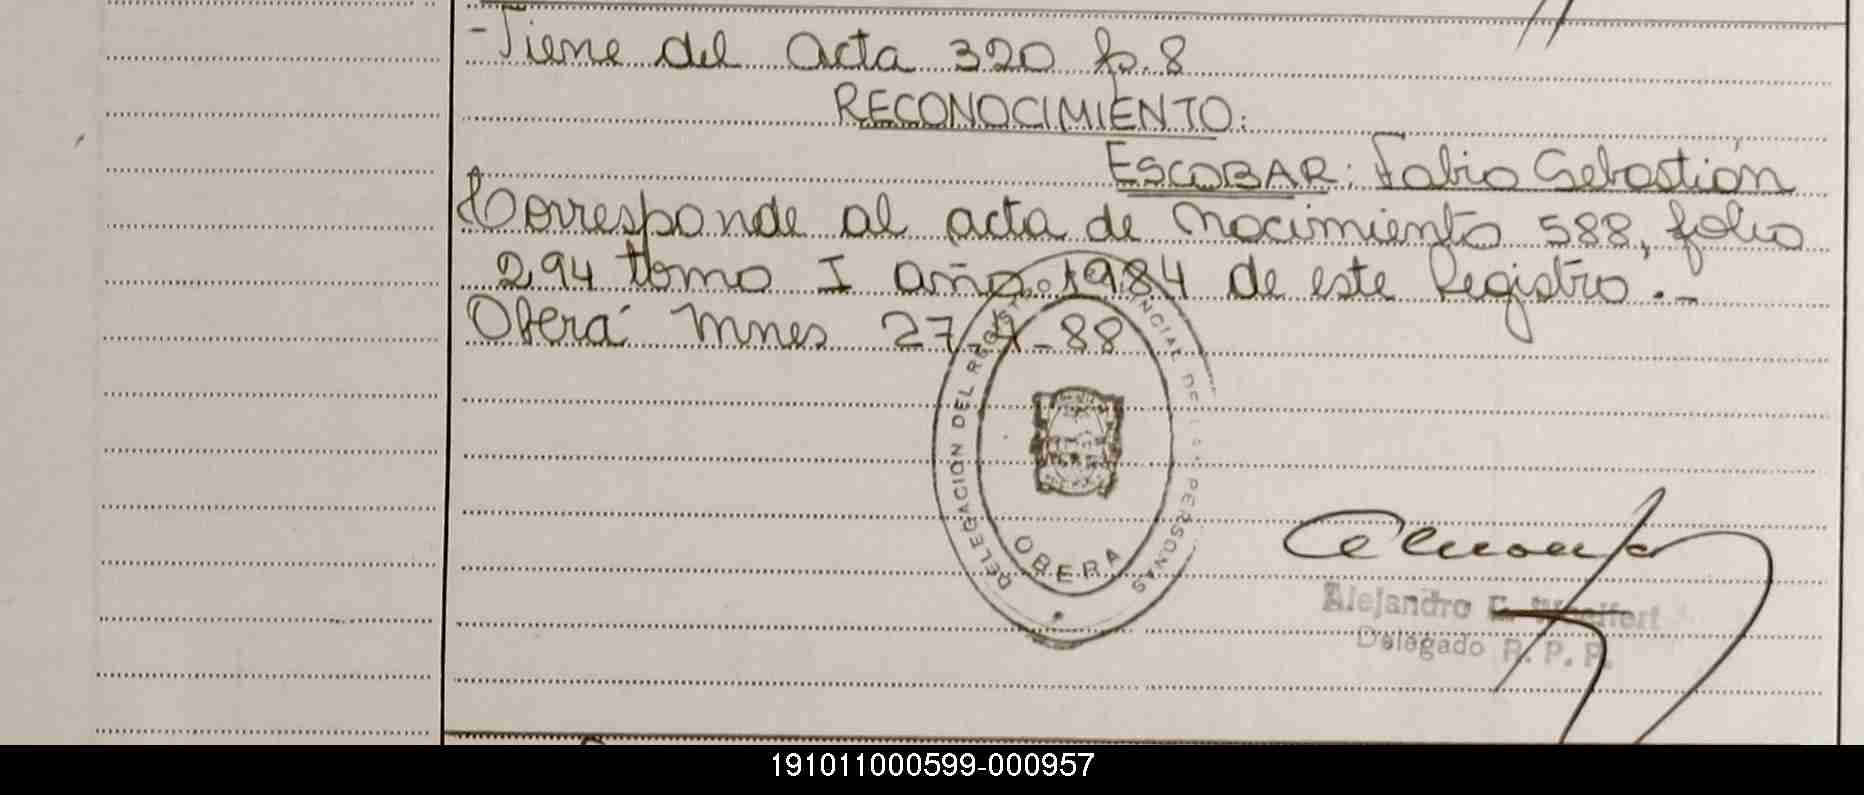 -Viene del acta 320 fo.8
RECONOCIMIENTO:
ESCOBAR: Fabio Sebastián
Corresponde al acta de nacimiento 588, folio
294 tomo I año 1984 de este Registro.-
Oberá Mnes 27-4-88
DELEGACION DEL REGIST NCIAL DE LAS PERSONAS
OBERA
Alejandro
Delegado R. P. P.
191011000599-000957